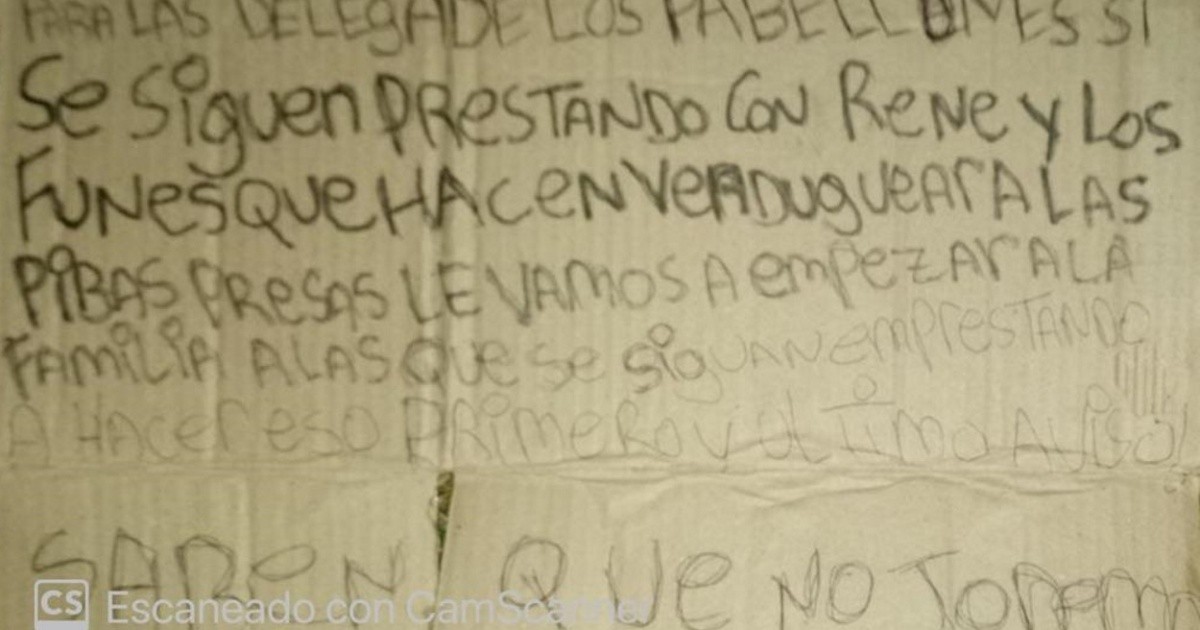 PARA LAS DELEGADE LOS PABELLONES SI
Se Siguen PResTANDO CON ReNe y Los
FuNes Que HACeN VeRDugueAr A LAS
PiBAS PResAS LE VAMOS A empezAr A LA
FAMiLiA A LAS Que se siguAN emprestANDO
A HAcer eso PRimeRo y ultimo AViso
SABeN Que NO Torem
CS Escaneado con CamScanner